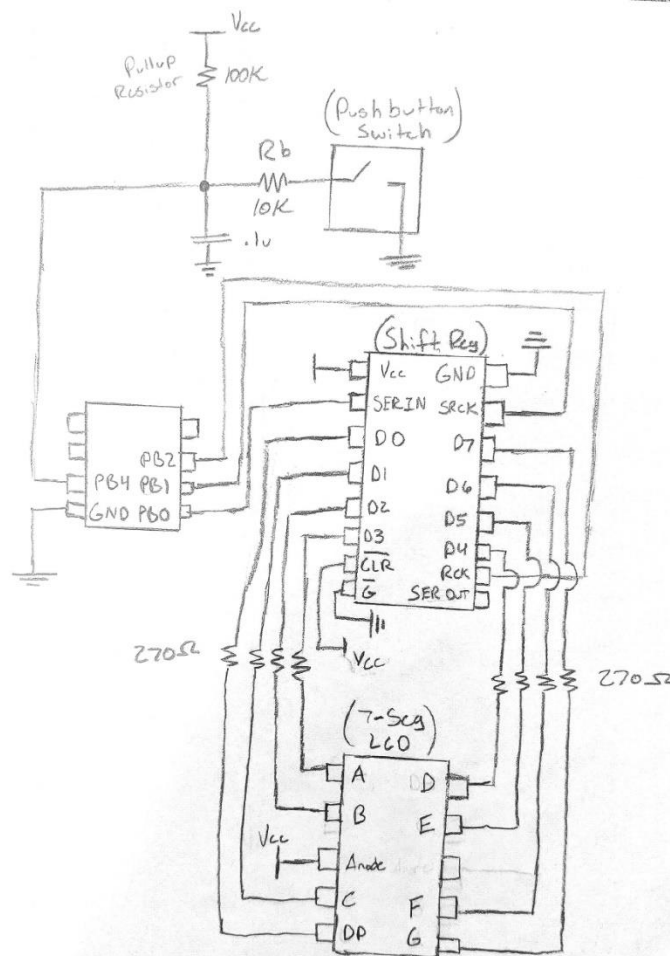 Vcc
Pullup
Resistor
100K
(Pushbutton
Switch)
Rb
10K
.1u
(Shift Reg)
Vcc
GND
SERIN
SRCK
D0
D7
D1
D6
D2
D5
D3
D4
CLR
RCK
G
SER OUT
PB2
PB4
PB1
GND
PB0
Vcc
270Ω
270Ω
(7-Seg
LCD)
A
D
B
E
Vcc
Anode
C
F
DP
G